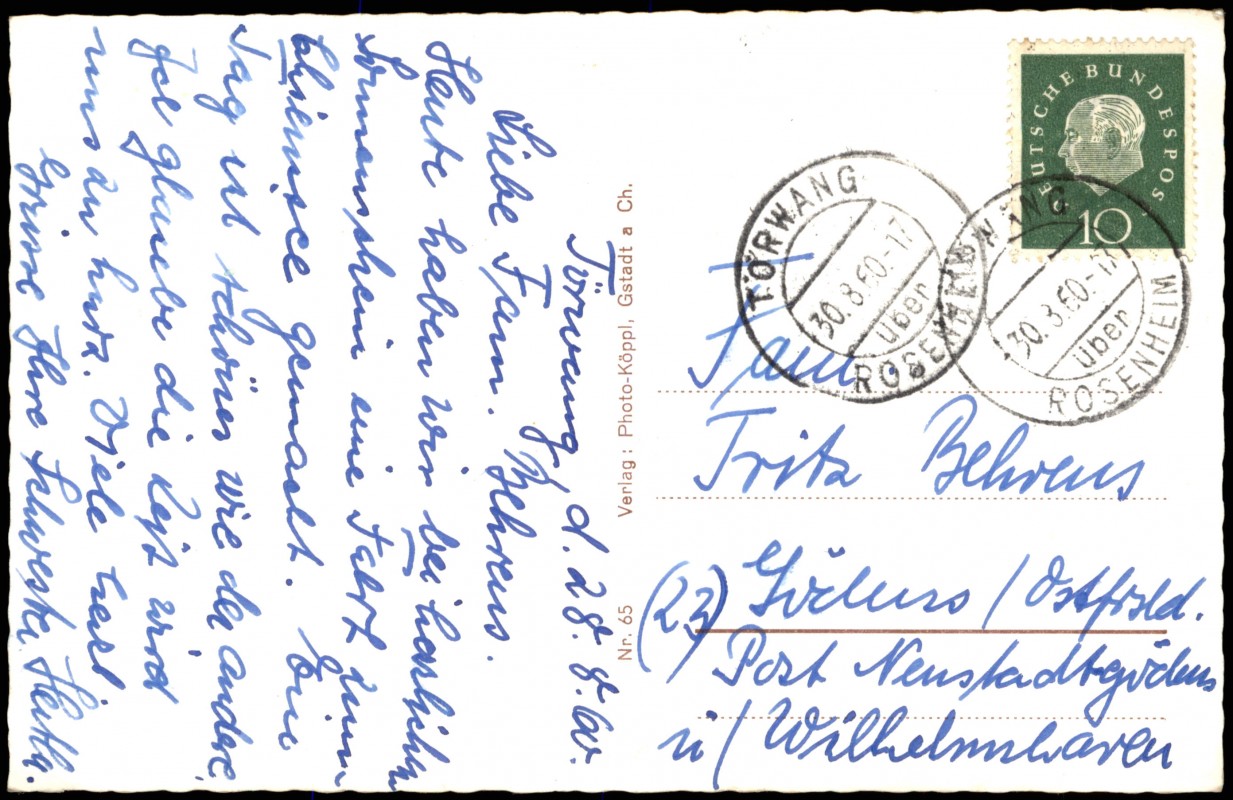 Törwang, d. 28.8.60.
Liebe Fam. Behrens.
Heute haben wir bei herrlichem
Sonnenschein eine Fahrt zum
Chiemsee gemacht. Ein
Tag ist schöner wie der andere.
Ich glaube die Zeit wird
uns zu kurz. Viele herzl.
Grüsse Ihre Schwester Herta.
Nr. 65 Verlag: Photo-Köppl, Gstadt a Ch.
DEUTSCHE BUNDESPOST
10
TÖRWANG
30.8.60.-17
über
ROSENHEIM
TÖRWANG
30.8.60.-17
über
ROSENHEIM
Fam.
Fritz Behrens
(23) Gödens / Ostfrsld.
Post Neustadtgödens
ü/ Wilhelmshaven